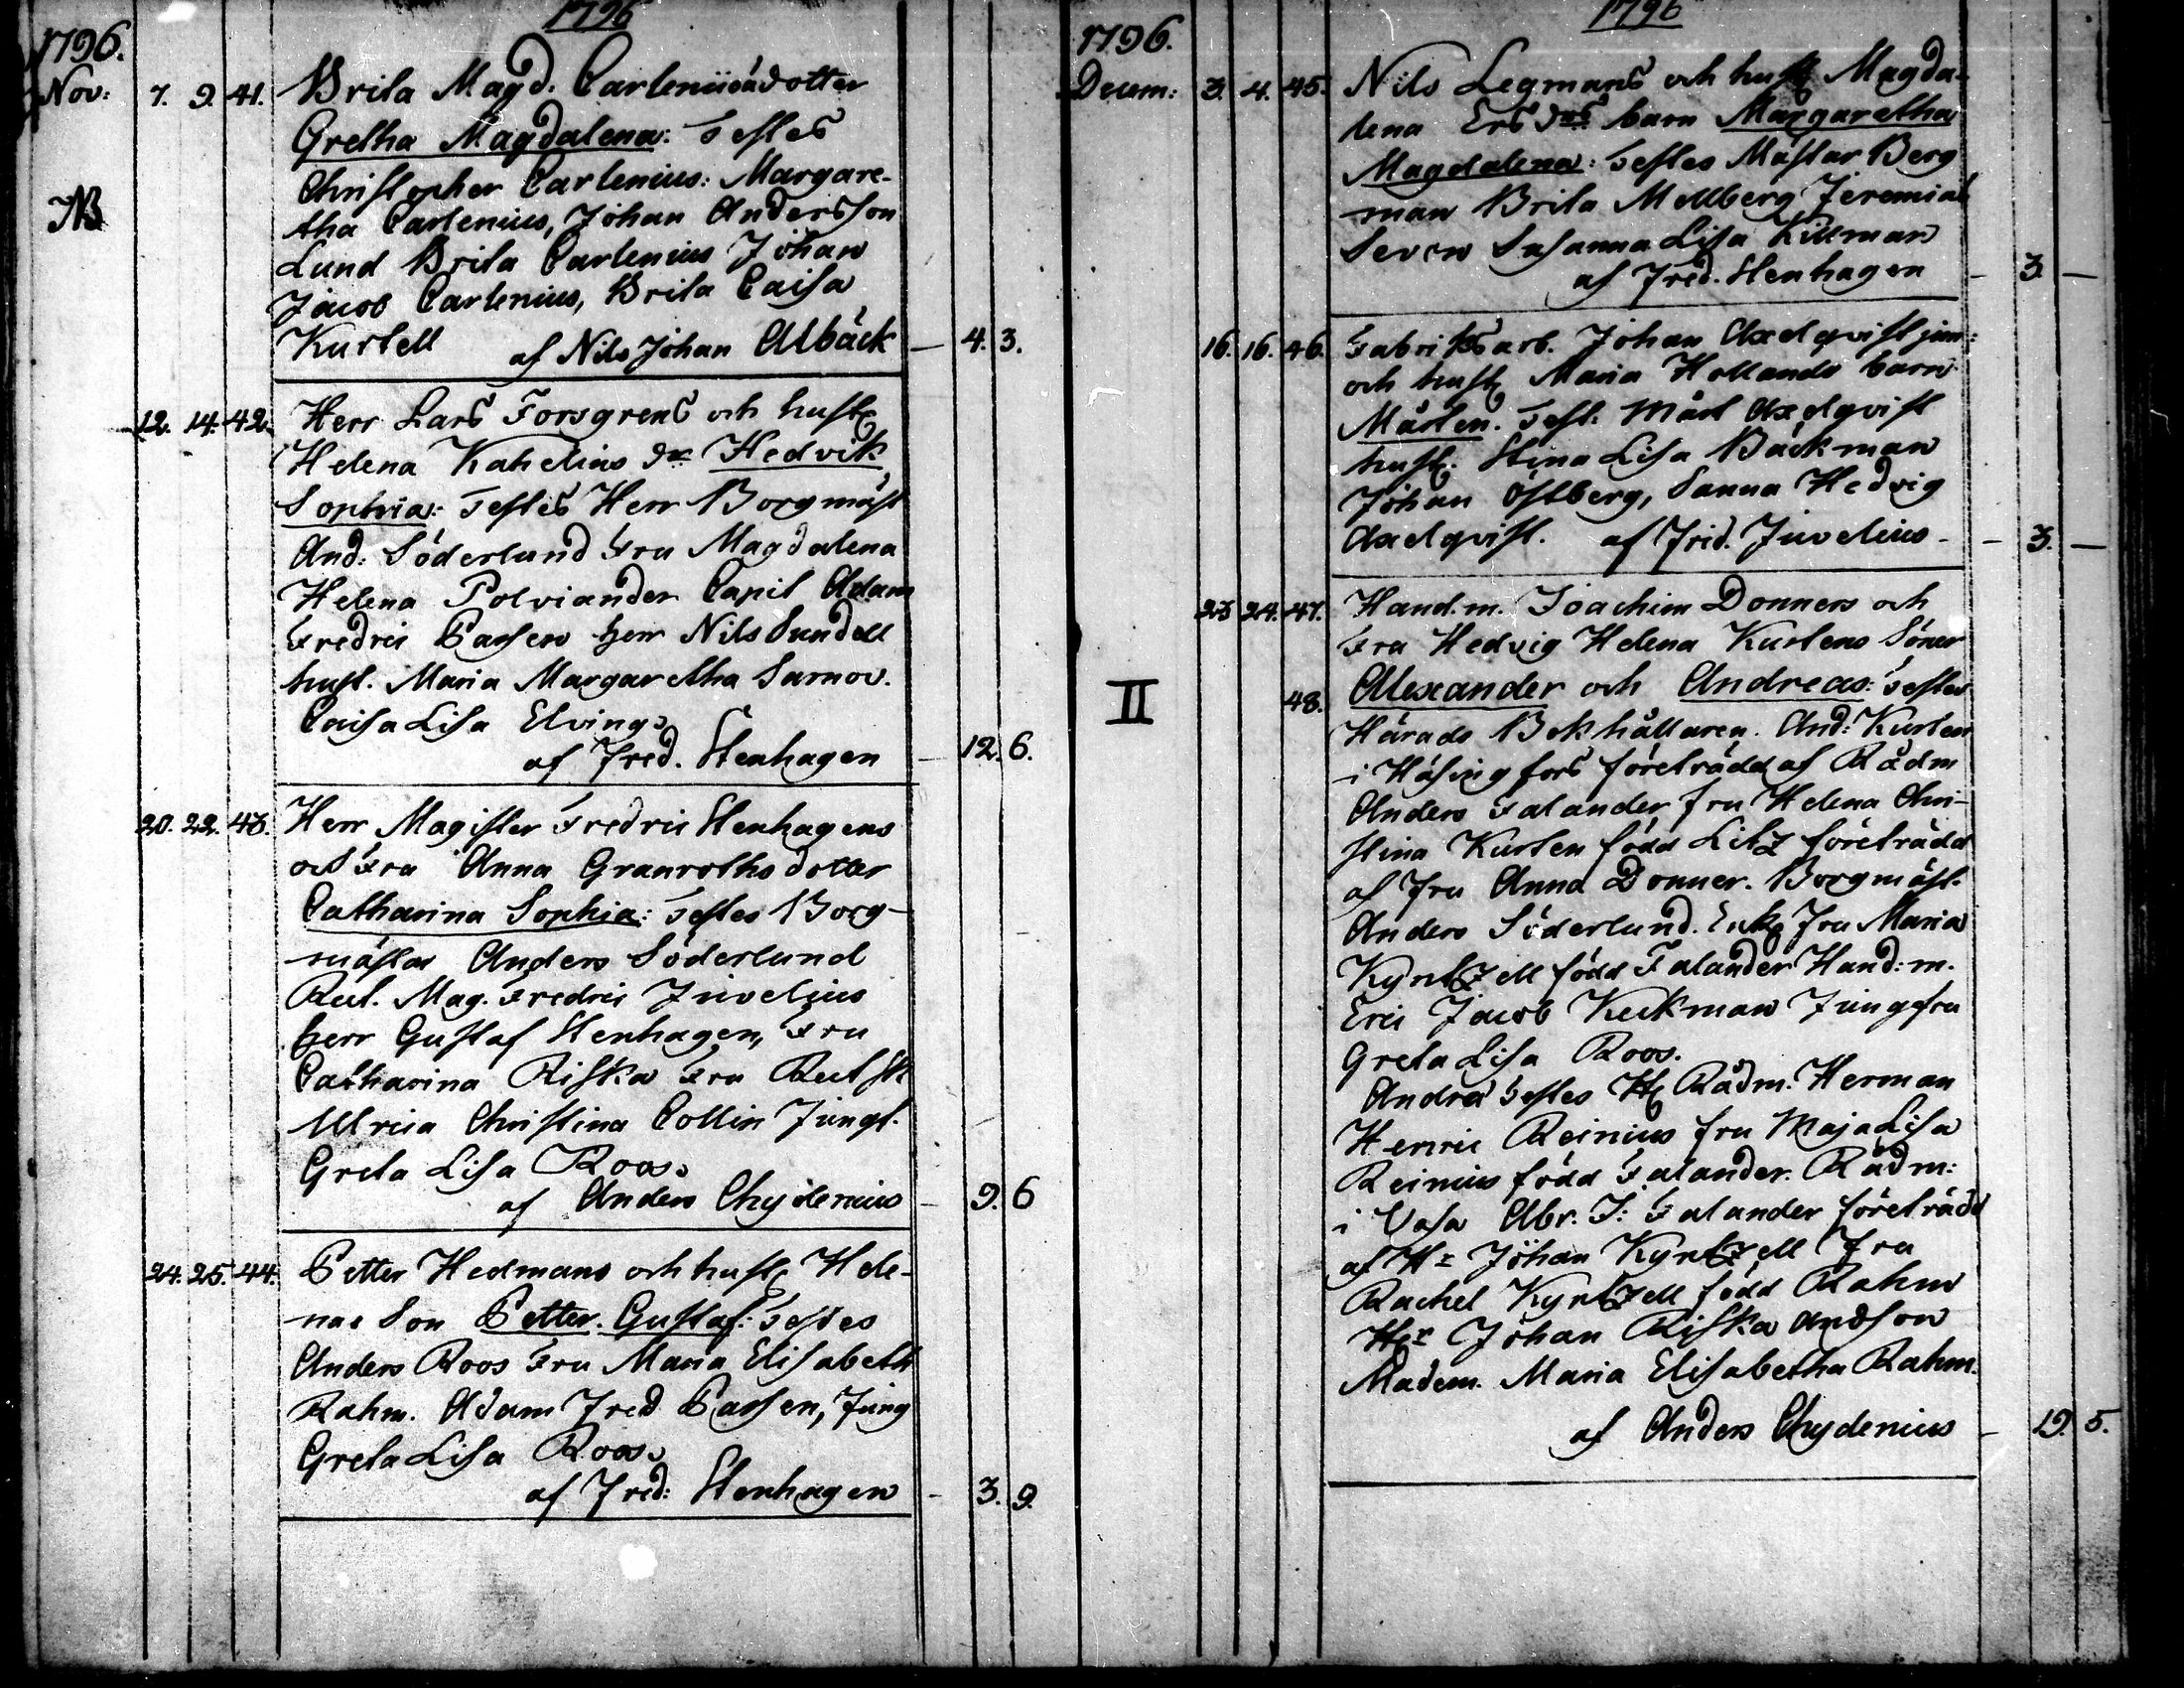 1796
1796.
Nov: 7. 9. 41. Brita Magd. Carlenius dotter
Gretha Magdalena: Testes
Christopher Carlenius: Margare-
NB
tha Carlenius, Johan Andersson
Lund Brita Carlenius Johan
Jacob Carlenius, Brita Caisa
Kurtell af Nils Johan Albäck — 4. 3.
12. 14. 42. Herr Lars Forsgrens och hust
Helena Kahelius dr Hedvik
Sophia: Testes Herr Borgmäst
And: Söderlund Fru Magdalena
Helena Polviander Capit Adam
Fredric Carlsen herr Nils Sundell
hust. Maria Margaretha Sarnov.
Caisa Lisa Elving
af Fred. Stenhagen — 12. 6.
20. 22. 43. Herr Magister Fredric Stenhagens
och Fru Anna Granroths dotter
Catharina Sophia: Testes Borg-
mästar Anders Söderlund
Rect. Mag. Fredric Juvelius
herr Gustaf Stenhagen, Fru
Catharina Riska Fru Rectsk
Ulrica Christina Collin Jungf.
Greta Lisa Roos.
af Anders Chydenius — 9. 6
24. 25. 44. Petter Hedmans och hust Hele-
nas Son Petter. Gustaf: Testes
Anders Roos Fru Maria Elisabeth
Rahm. Adam Fred Passen, Jung
Greta Lisa Roos.
af Fred: Stenhagen — 3. 9.
1796
1796.
Decem: 3. 4. 45. Nils Legmans och hust Magda-
lena Ers drs barn Margaretha
Magdalena: Testes Mästar Berg
man Brita Mellberg Jeremias
Seven Susanna Lisa Killman
af Fred. Stenhagen — 3. —
16. 16. 46. Fabriks arb. Johan Axelqvist jun:
och hust Maria Hollands barn
Mårten. Test: Mårt Axelqvist
hust. Stina Lisa Bäckman
Johan Östberg, Sanna Hedvig
Axelqvist. af Frid. Juvelius — 3. —
23 24. 47. Hand. m. Joachim Donners och
Fru Hedvig Helena Kurtens Söner
II
48. Alexander och Andreas: Testes
Härads Bokhållaren. And: Kurten
i Häsingfors företrädd af Rådm
Anders Falander fru Helena Chri-
stina Kurten född Litz företrädd
af fru Anna Donner. Borgmäst.
Anders Söderlund. Enk fru Maria
Kyntzell född Falander Hand: m.
Eric Jacob Keckman Jungfru
Greta Lisa Roos.
Andreæ Testes Hr Rådm. Herman
Henric Reinius fru Maja Lisa
Reinius född Falander. Rådm:
i Vasa Abr. I: Falander företrädd
af Hr Johan Kyntzell Fru
Rachel Kyntzell född Rahm
Hr Johan Riska andson
Madem. Maria Elisabetha Rahm.
af Anders Chydenius — 19. 5.